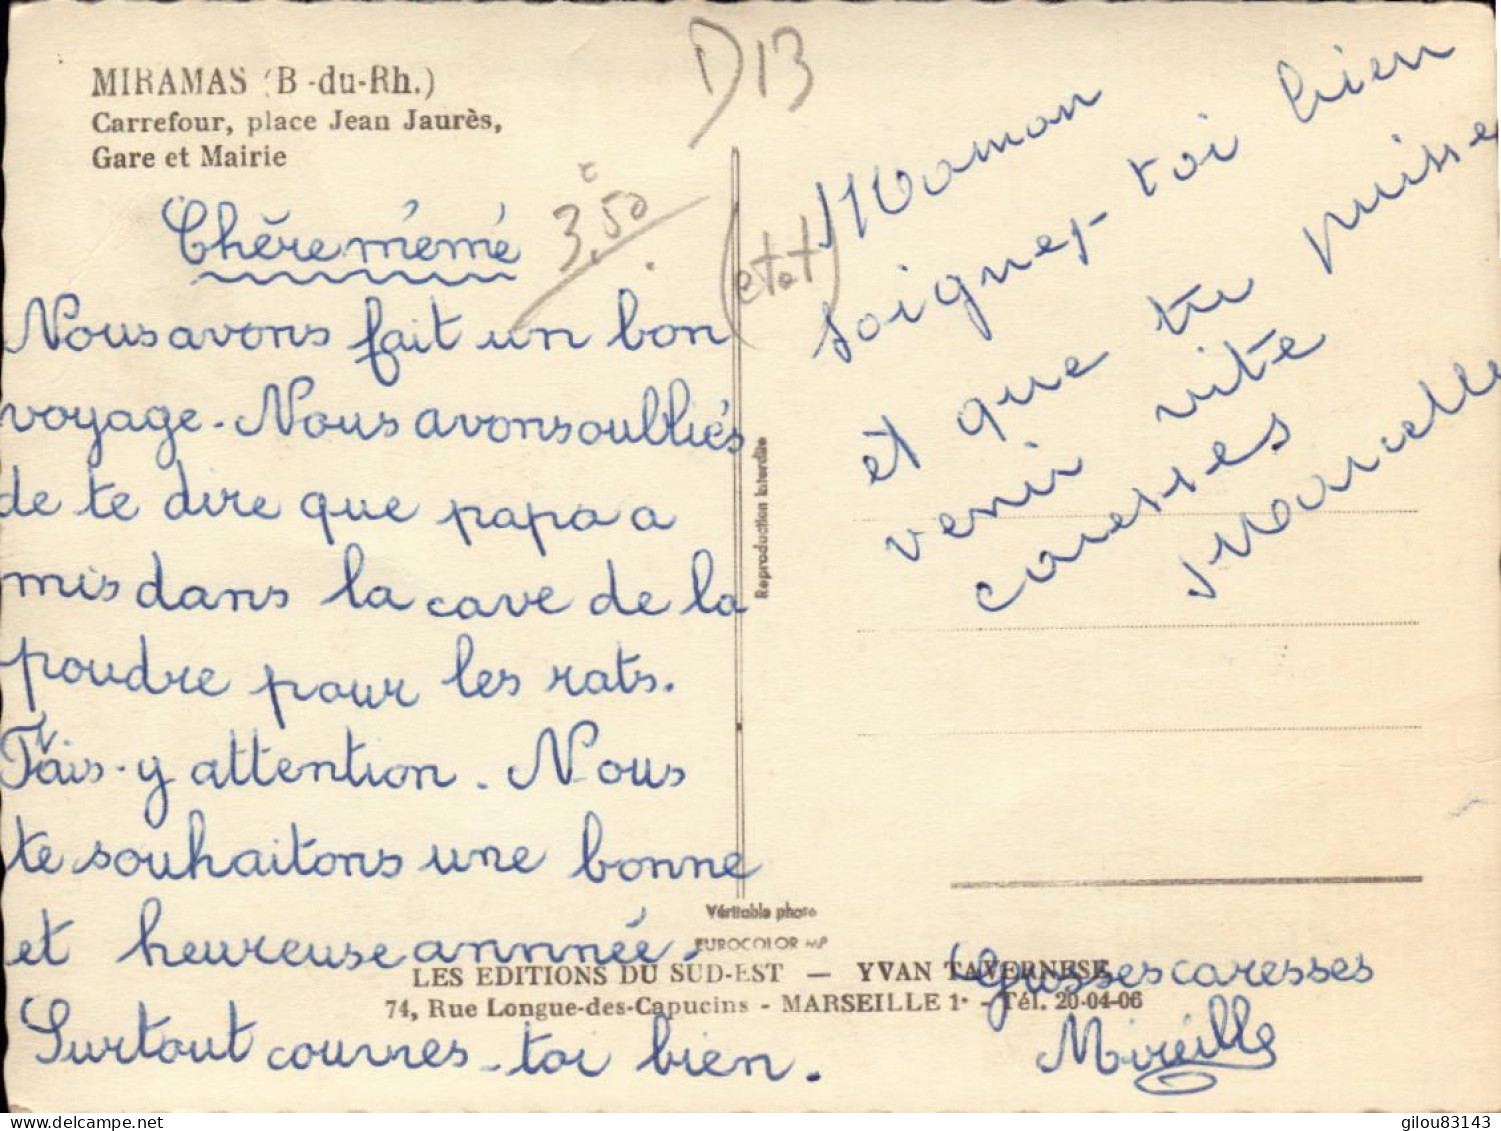 MIRAMAS (B-du-Rh.)
Carrefour, place Jean Jaurès,
Gare et Mairie
D13
3,50
(etat)
Chère mémé
Nous avons fait un bon
voyage. Nous avons oubliés
de te dire que papa a
mis dans la cave de la
poudre pour les rats.
Fais-y attention. Nous
te souhaitons une bonne
et heureuse annnée.
Surtout couvres-toi bien.
Grosses caresses
Mireille
Maman
soignes-toi bien
et que tu puisse
venir vite
caresses
Marcelle
Reproduction interdite
Véritable photo
EUROCOLOR MP
LES EDITIONS DU SUD-EST — YVAN TAVERNESE
74, Rue Longue-des-Capucins - MARSEILLE 1e - Tél. 20-04-06
gilou83143